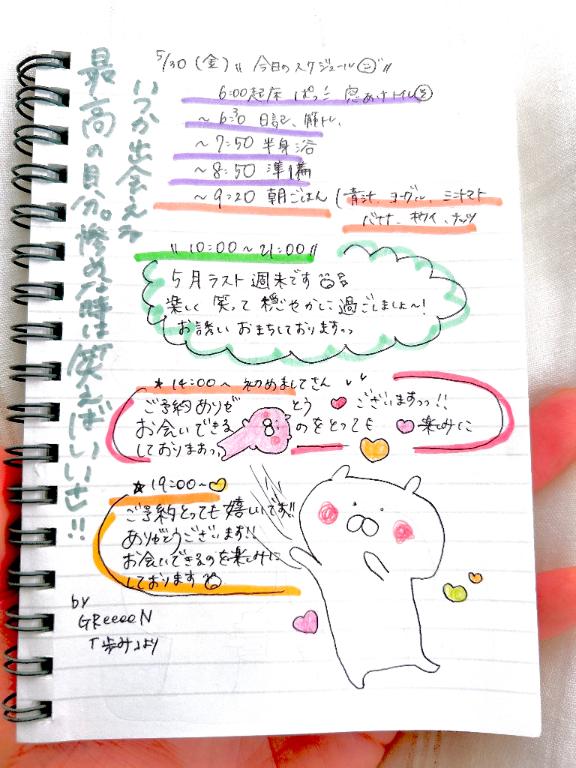 5/30(金)"今日のスケジュール"
6:00起床 ぱっ 窓あけトイレ
〜6:30 日記、筋トレ、
〜7:50 半身浴
〜8:50 準備
〜9:20 朝ごはん(青汁、ヨーグル、ミニトマト
バナナ、キウイ、ナッツ
"10:00〜21:00"
5月ラスト週末です
楽しく笑って穏やかに過ごしましょ〜!
お誘いおまちしておりますっっ
★14:00〜 初めましてさん
ご予約ありがとうございますっっ!!
お会いできるのをとっても楽しみに
しておりますっっ
★19:00〜
ご予約とっても嬉しいです!!
ありがとうございます!!
お会いできるのを楽しみに
しております
いつか出会える
最高の自分。惨めな時は笑えばいいさ!!
by
GReeeeN
「歩み」より